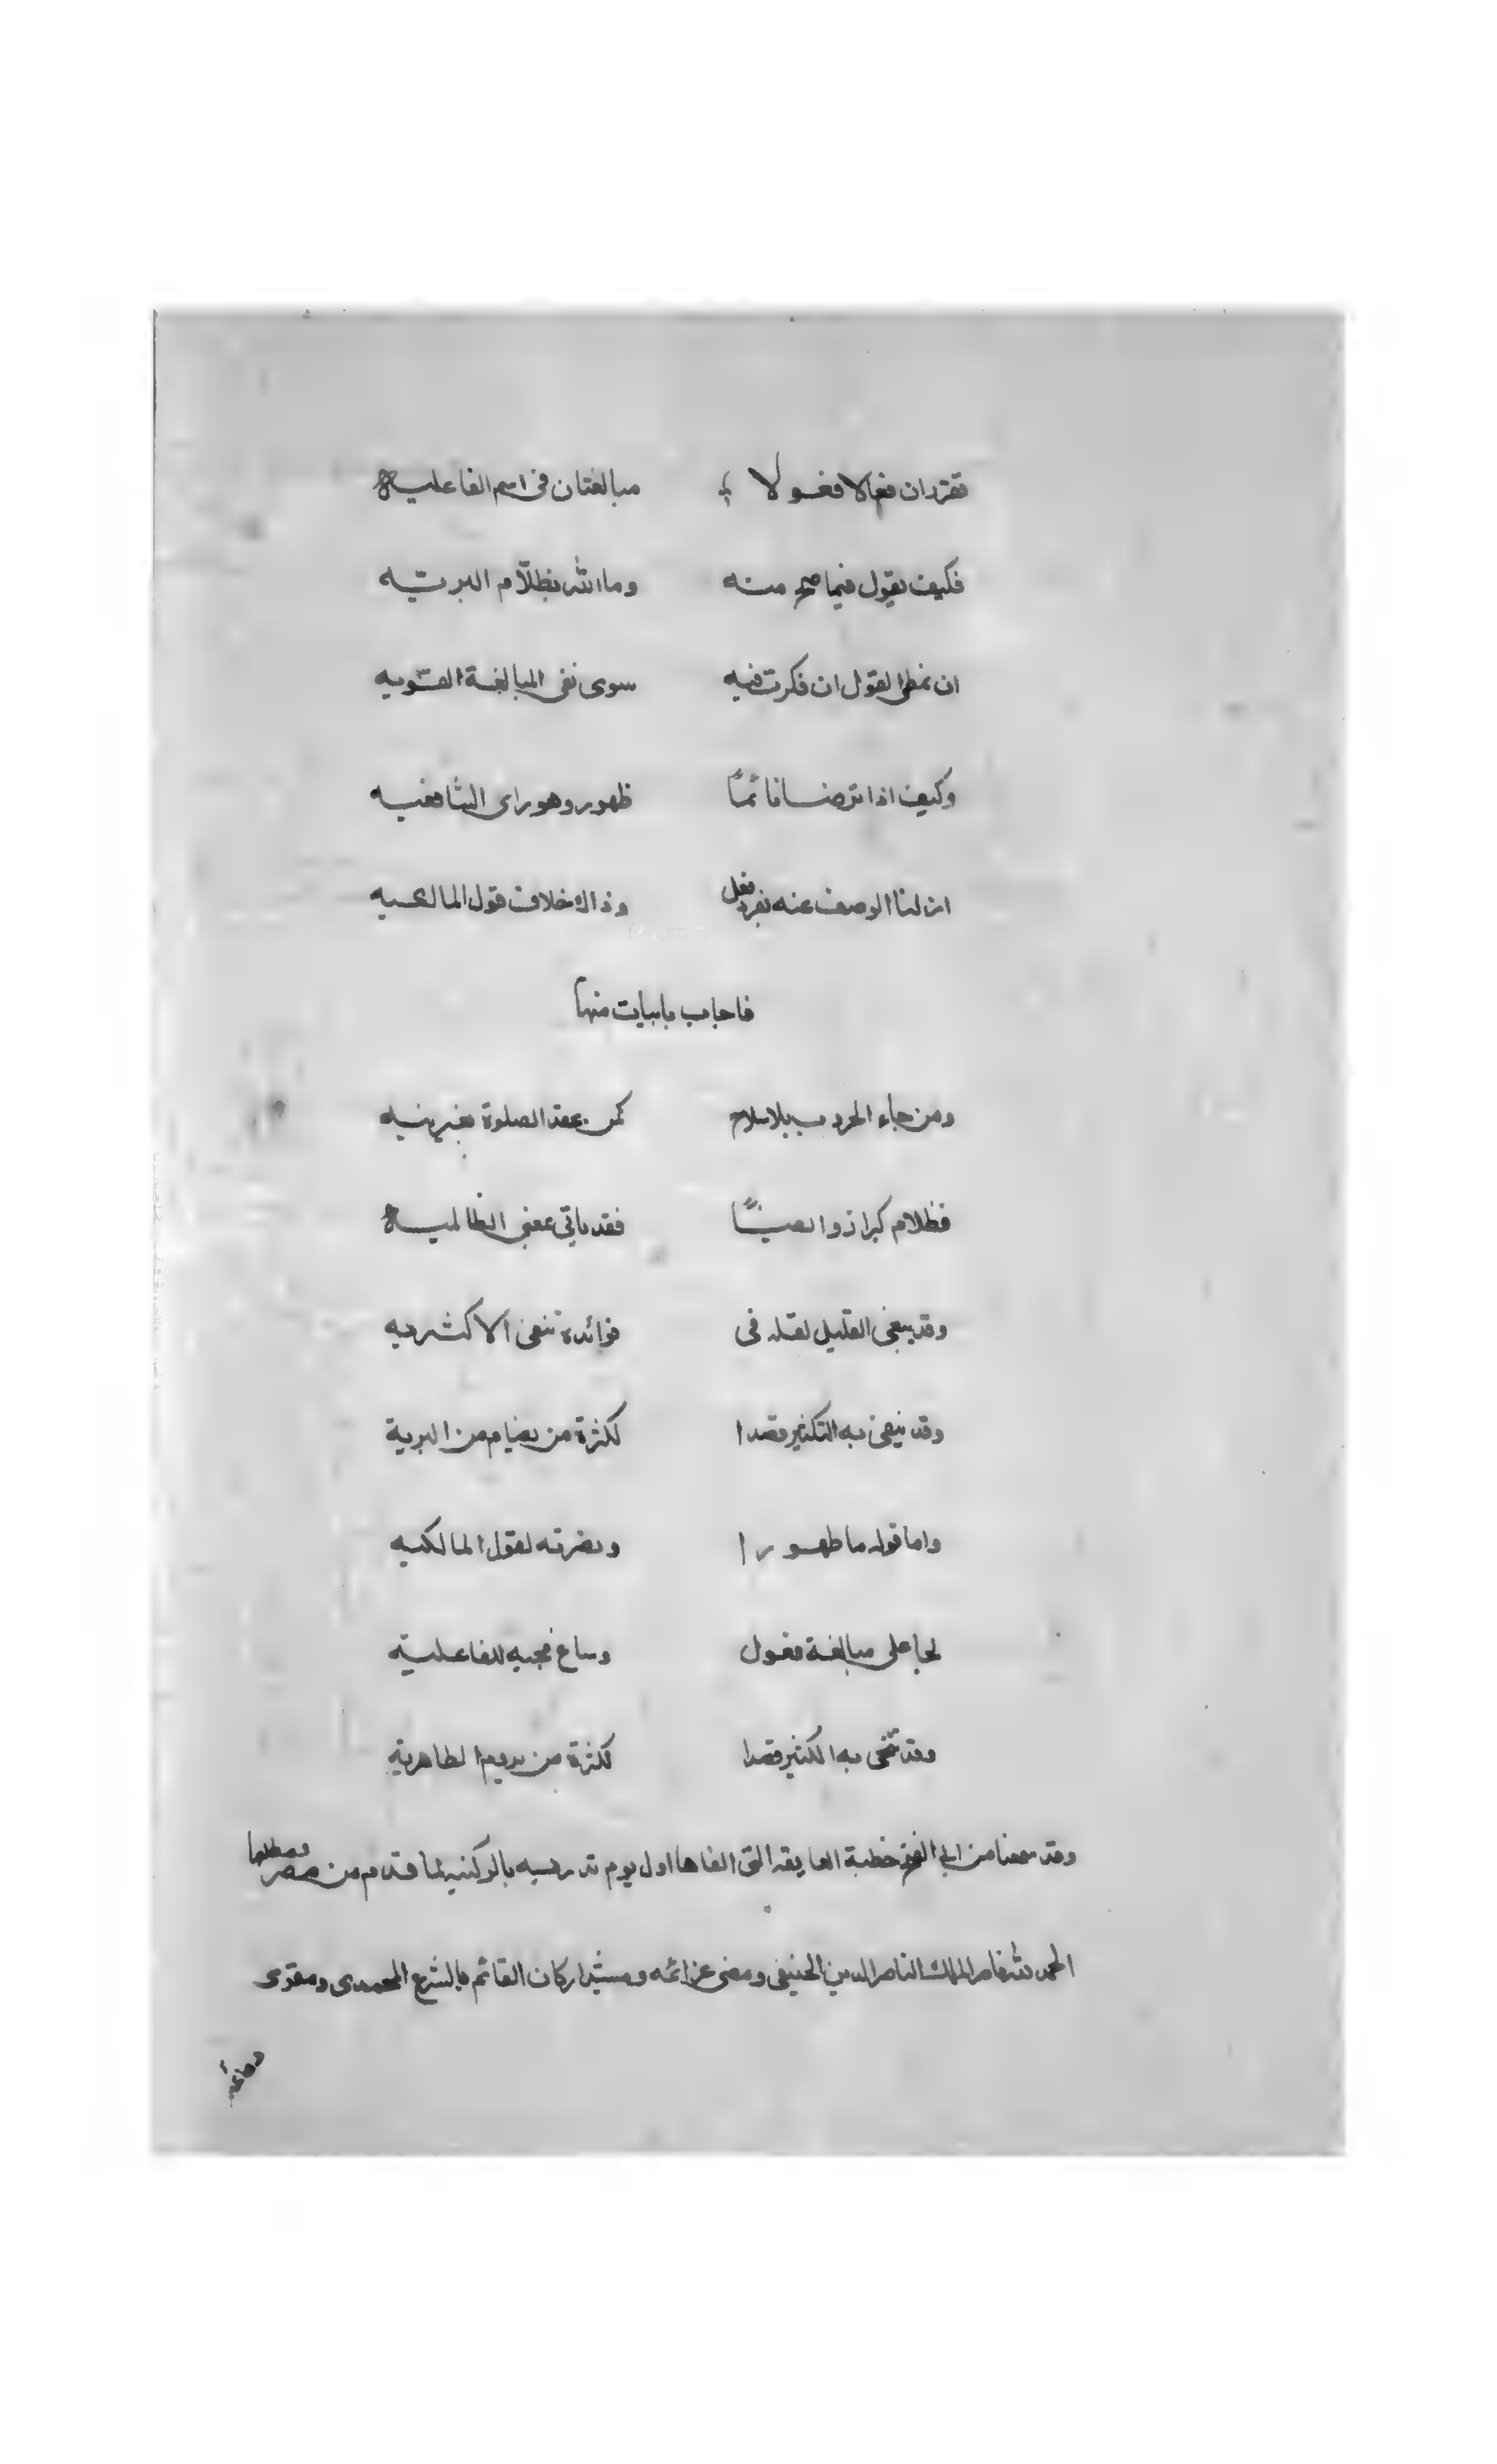 تقرر ان فعالا فعولا مبالغتان فى اسم الفاعليه
فكيف يقول فيما صح منه وما الله بظلّام البريّه
القول ان فكرت فيه سوى نفى المبالغة القويه
وكيف اذا توضا قائمًا ظهور وهو راى الشافعيه
الوصف عنه بفرد فعل وذاك خلاف قول المالكيه
فاجاب بابيات منها
ومن جاء الحروب بلا سلاح كمن عقد الصلوة بغير نيه
فظلام كبزاز وايضًا فقد ياتى بمعنى الظالميه
وقد ينفى القليل لقله فى فوائده نفى الاكثريه
وقد ينفى به التكثير قصدا لكثرة من يضام من البرية
واما قوله ما طهورا ونصرته لقول المالكيه
لجا على مبالغة فعول وساغ مجيه للفاعليّه
وقد به الكثير قصدا لكثرة من يروم الطاهريه
وقد سمعنا من ابى الفتح خطبة التى القاها اول يوم تدريسه بالركنيه لما قدم من مصر ومطلعها
الحمد لله ناصر الملك الناصر للدين الحنيفى ومضى عزائمه ومشيد اركان القائم بالشرع المحمدى ومقوى
دعائمه